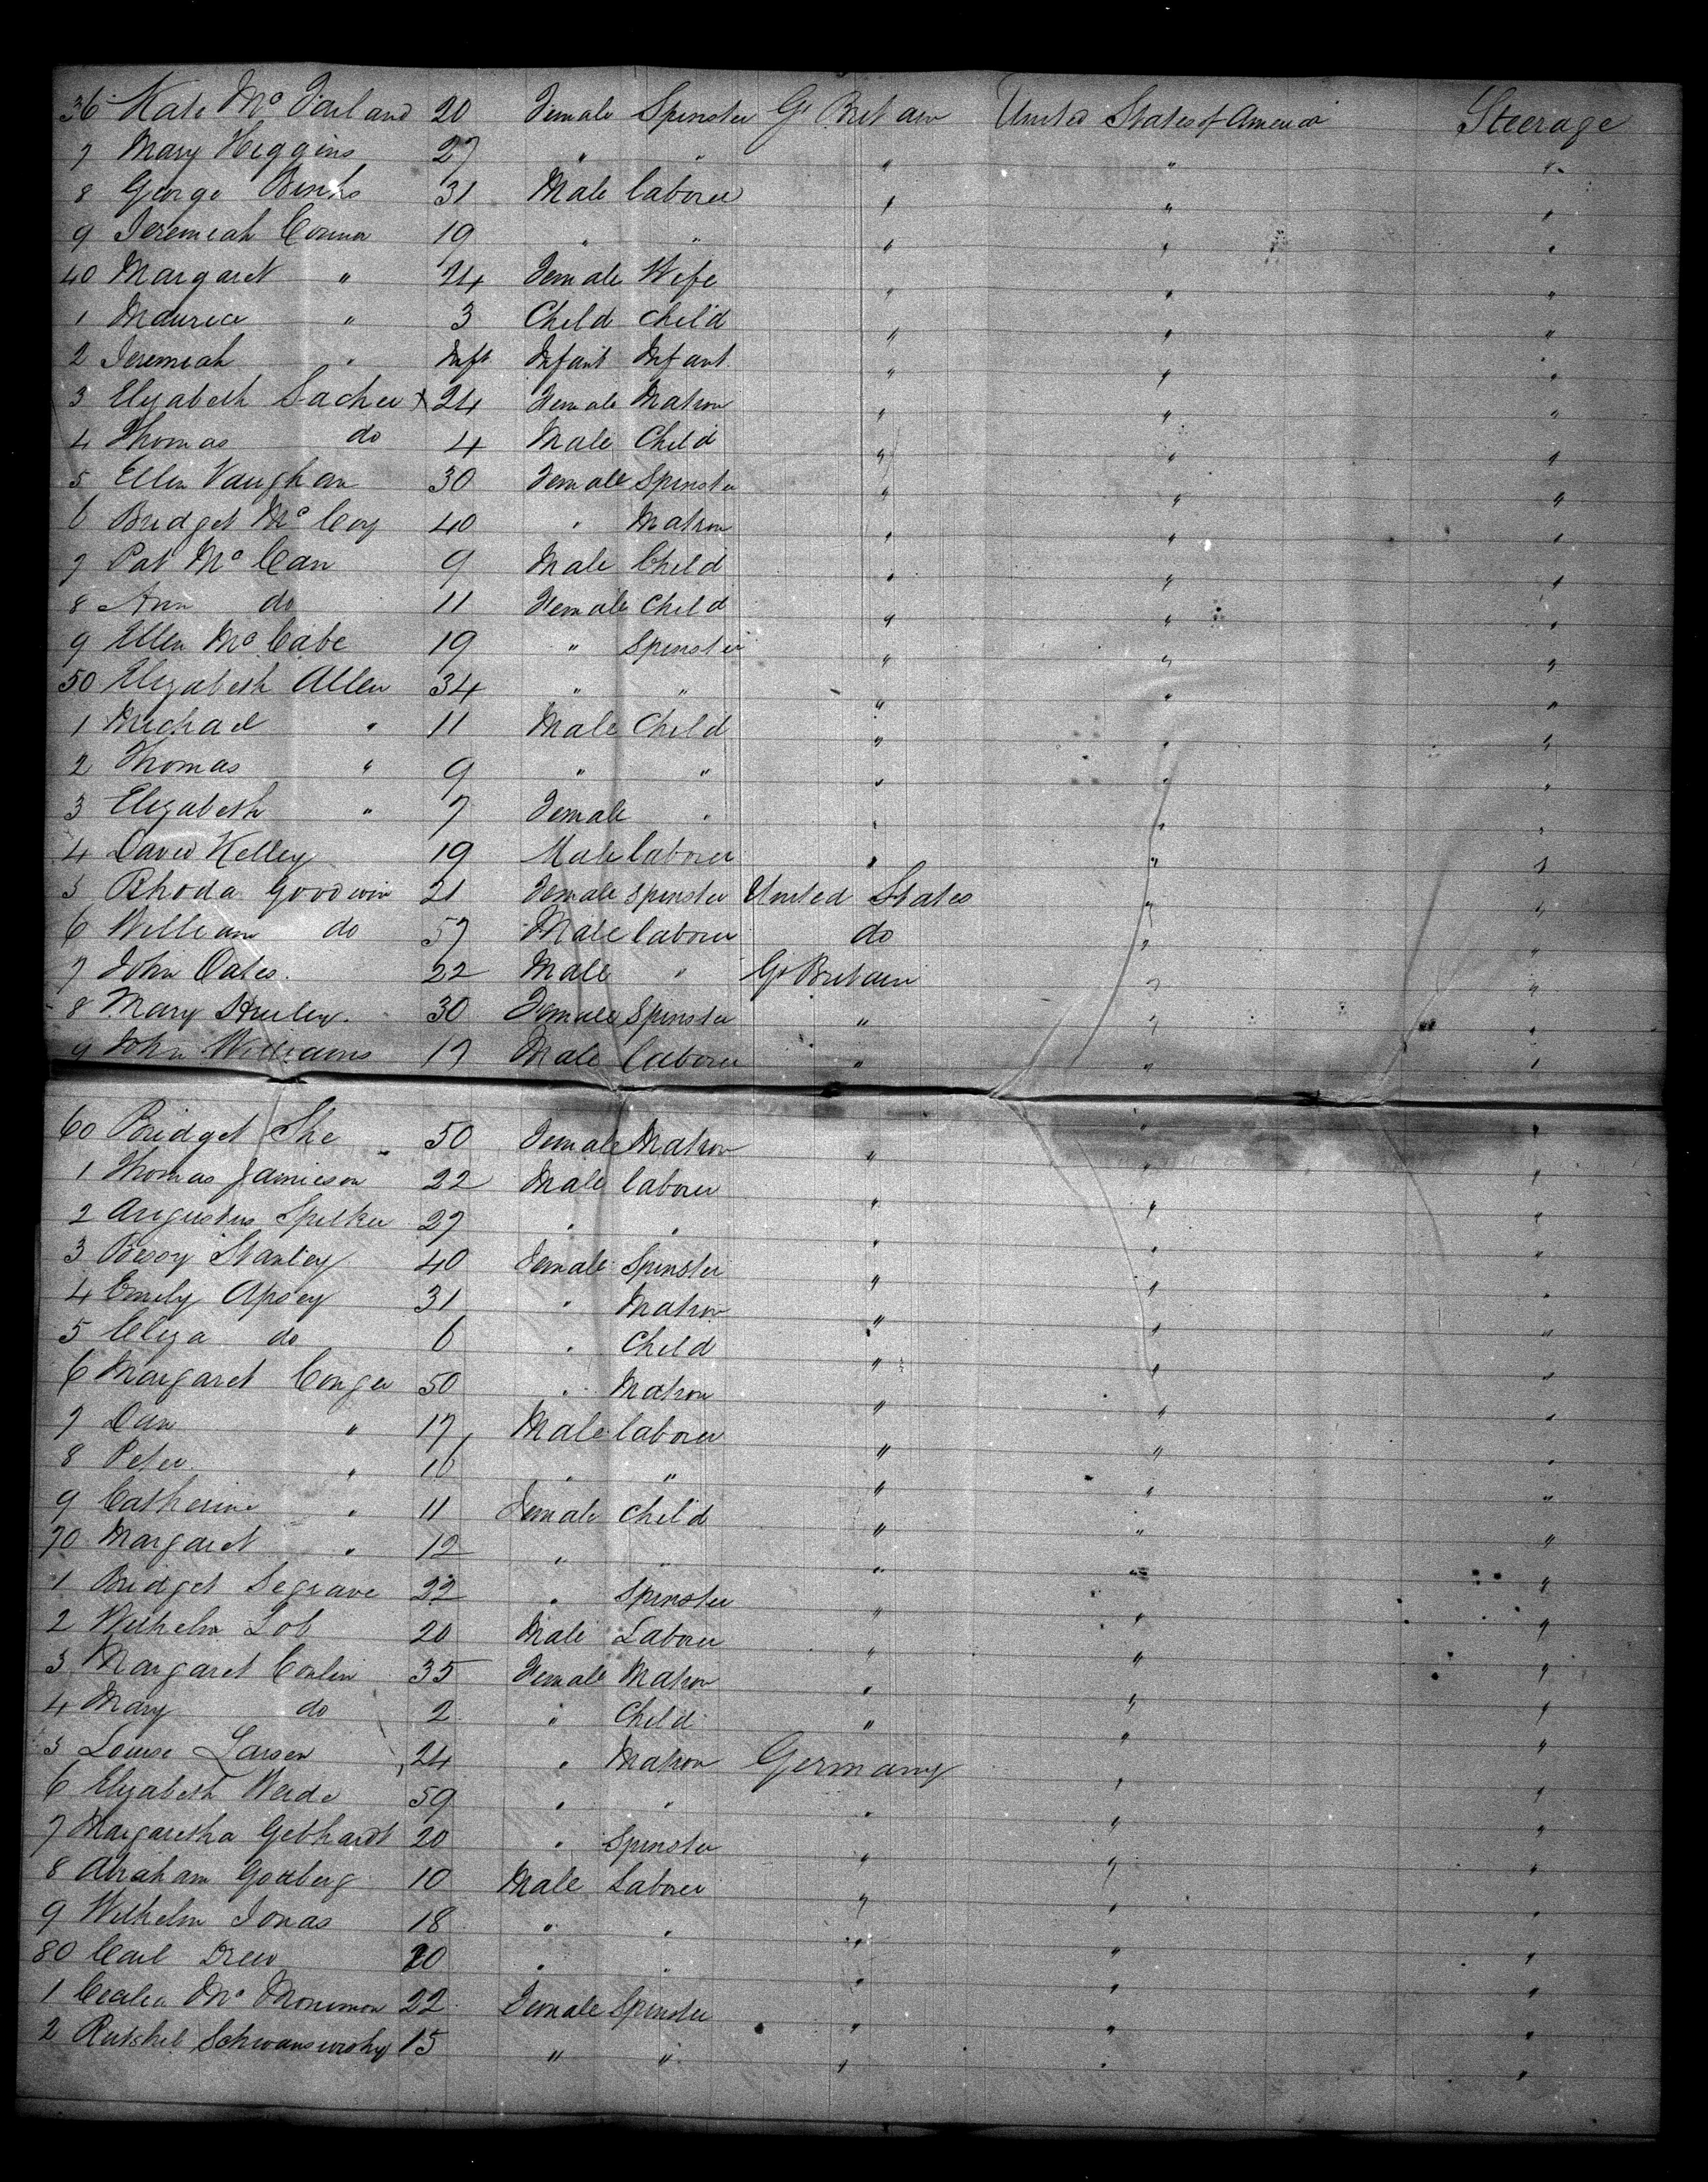 36 Kate Mc Farland 20 Female Spinster Gt Britain United States of America Steerage
7 Mary Higgins 27 " " " " "
8 George Binks 31 Male laborer " " "
9 Jeremiah Connor 19 " " " " "
40 Margaret " 24 Female Wife " " "
1 Maurice " 3 Child child " " "
2 Jeremiah " Inft Infant Infant " " "
3 Elizabeth Sacher x 24 Female Matron " " "
4 Thomas do 4 Male Child " " "
5 Ellen Vaughan 30 Female Spinster " " "
6 Bridget Mc Coy 40 " Matron " " "
7 Pat Mc Can 9 Male Child " " "
8 Ann do 11 Female Child " " "
9 Ellen Mc Cabe 19 " Spinster " " "
50 Elizabeth Allen 34 " " " " "
1 Michael " 11 Male Child " " "
2 Thomas " 9 " " " " "
3 Elizabeth " 7 Female " " " "
4 David Kelley 19 Male laborer " " "
5 Rhoda Goodwin 21 Female spinster United States " "
6 William do 57 Male laborer do " "
7 John Oates 22 Male " Gt Britain " "
8 Mary Hurley 30 Female Spinster " " "
9 John Williams 17 Male laborer " " "
60 Bridget She 50 Female Matron " " "
1 Thomas Jamieson 22 Male laborer " " "
2 Augustus Spilker 27 " " " " "
3 Bessy Stanley 40 Female Spinster " " "
4 Emily Apsey 31 " Matron " " "
5 Eliza do 6 " Child " " "
6 Margaret Conger 50 " Matron " " "
7 Dan " 17 Male laborer " " "
8 Peter " 16 " " " " "
9 Catherine " 11 Female child " " "
70 Margaret " 12 " " " " "
1 Bridget Segrave 22 " Spinster " " "
2 Wilhelm Lob 20 Male Laborer " " "
3 Margaret Conlin 35 Female Matron " " "
4 Mary do 2 " Child " " "
5 Louise Larsen 24 " Matron Germany " "
6 Elizabeth Weide 59 " " " " "
7 Margaretha Gebhardt 20 " Spinster " " "
8 Abraham Gottberg 10 Male Laborer " " "
9 Wilhelm Jonas 18 " " " " "
80 Carl Drew 20 " " " " "
1 Cecelia Mc 22 Female Spinster " " "
2 15 " " " " "